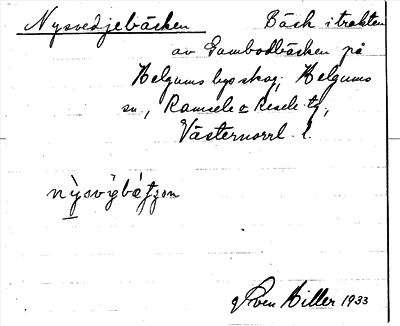 Nysvedjebäcken Bäck i trakten
av Gambodbäcken på
Helgums bys skog, Helgums
sn, Ramsele & Resele tg,
Västernorrl. l.
nỳsvỳbæ̀tʃɔn
Sven Hiller 1933